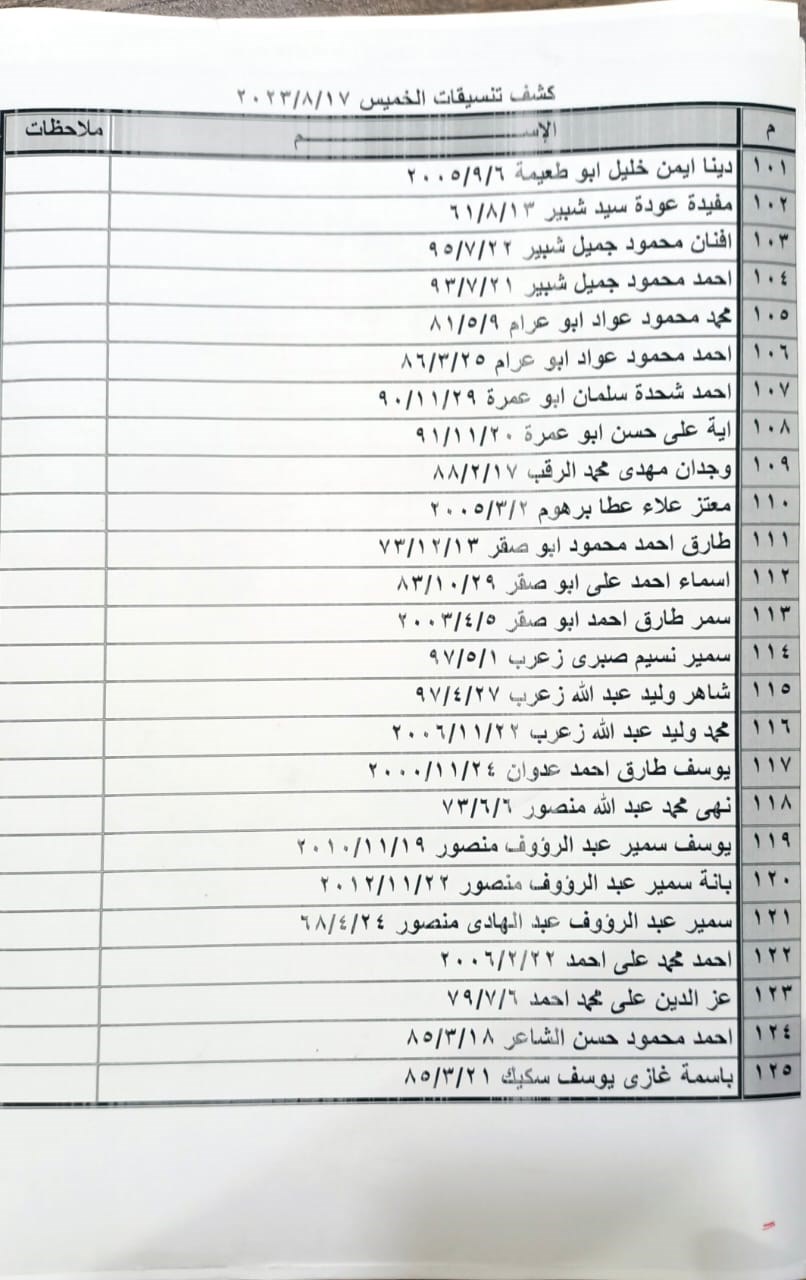 كشف تنسيقات الخميس ٢٠٢٣/٨/١٧
م الإســـــــم ملاحظات
١٠١ دينا ايمن خليل ابو طعيمة ٢٠٠٥/٩/٦
١٠٢ مفيدة عودة سيد شبير ٦١/٨/١٣
١٠٣ افنان محمود جميل شبير ٩٥/٧/٢٢
١٠٤ احمد محمود جميل شبير ٩٣/٧/٢١
١٠٥ محمد محمود عواد ابو عرام ٨١/٥/٩
١٠٦ احمد محمود عواد ابو عرام ٨٦/٣/٢٥
١٠٧ احمد شحدة سلمان ابو عمرة ٩٠/١١/٢٩
١٠٨ اية على حسن ابو عمرة ٩١/١١/٢٠
١٠٩ وجدان مهدى محمد الرقب ٨٨/٢/١٧
١١٠ معتز علاء عطا برهوم ٢٠٠٥/٣/٢
١١١ طارق احمد محمود ابو صقر ٧٣/١٢/١٣
١١٢ اسماء احمد على ابو صقر ٨٣/١٠/٢٩
١١٣ سمر طارق احمد ابو صقر ٢٠٠٣/٤/٥
١١٤ سمير نسيم صبرى زعرب ٩٧/٥/١
١١٥ شاهر وليد عبد الله زعرب ٩٧/٤/٢٧
١١٦ محمد وليد عبد الله زعرب ٢٠٠٦/١١/٢٢
١١٧ يوسف طارق احمد عدوان ٢٠٠٠/١١/٢٤
١١٨ نهى محمد عبد الله منصور ٧٣/٦/٦
١١٩ يوسف سمير عبد الرؤوف منصور ٢٠١٠/١١/١٩
١٢٠ بانة سمير عبد الرؤوف منصور ٢٠١٢/١١/٢٢
١٢١ سمير عبد الرؤوف عبد الهادى منصور ٦٨/٤/٢٤
١٢٢ احمد محمد على احمد ٢٠٠٦/٢/٢٢
١٢٣ عز الدين على محمد احمد ٧٩/٧/٦
١٢٤ احمد محمود حسن الشاعر ٨٥/٣/١٨
١٢٥ باسمة غازى يوسف سكيك ٨٥/٣/٢١